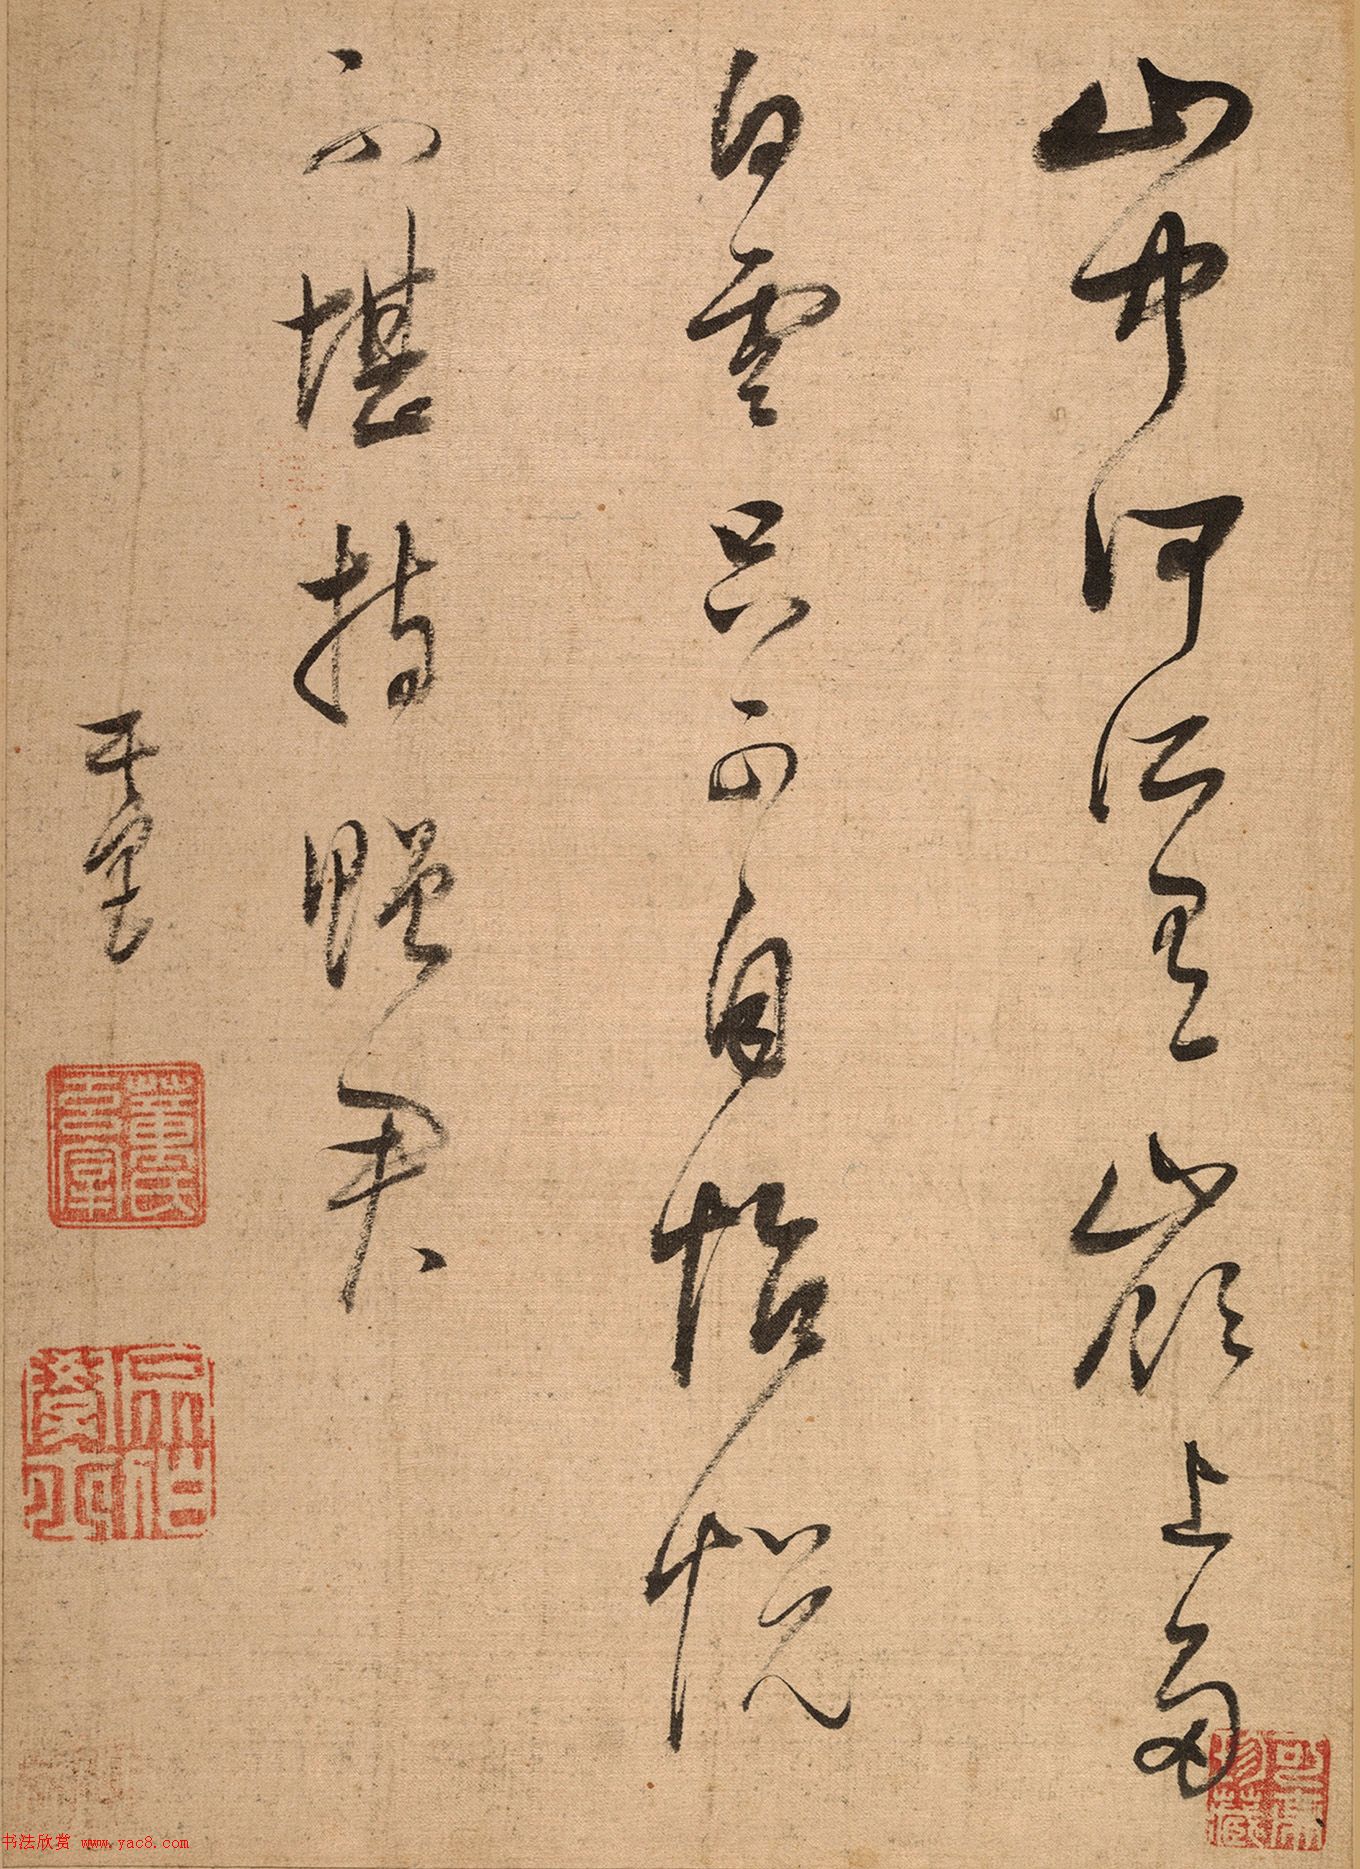 山中何所有嶺上多
白雲只可自怡悅
不堪持贈君
董氏玄宰
书法欣赏 www.yac8.com